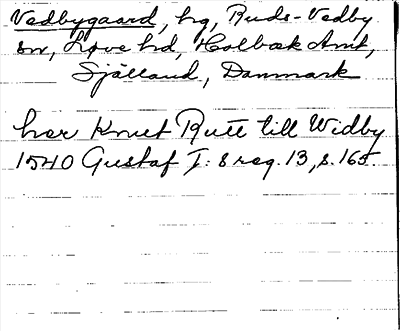 Vedbygaard, hg, Ruds-Vedby
sn, Løve hd, Holbæk Amt,
Själland, Danmark
her Knut Rutt till Widby
1540 Gustaf I:s reg. 13, s. 165.